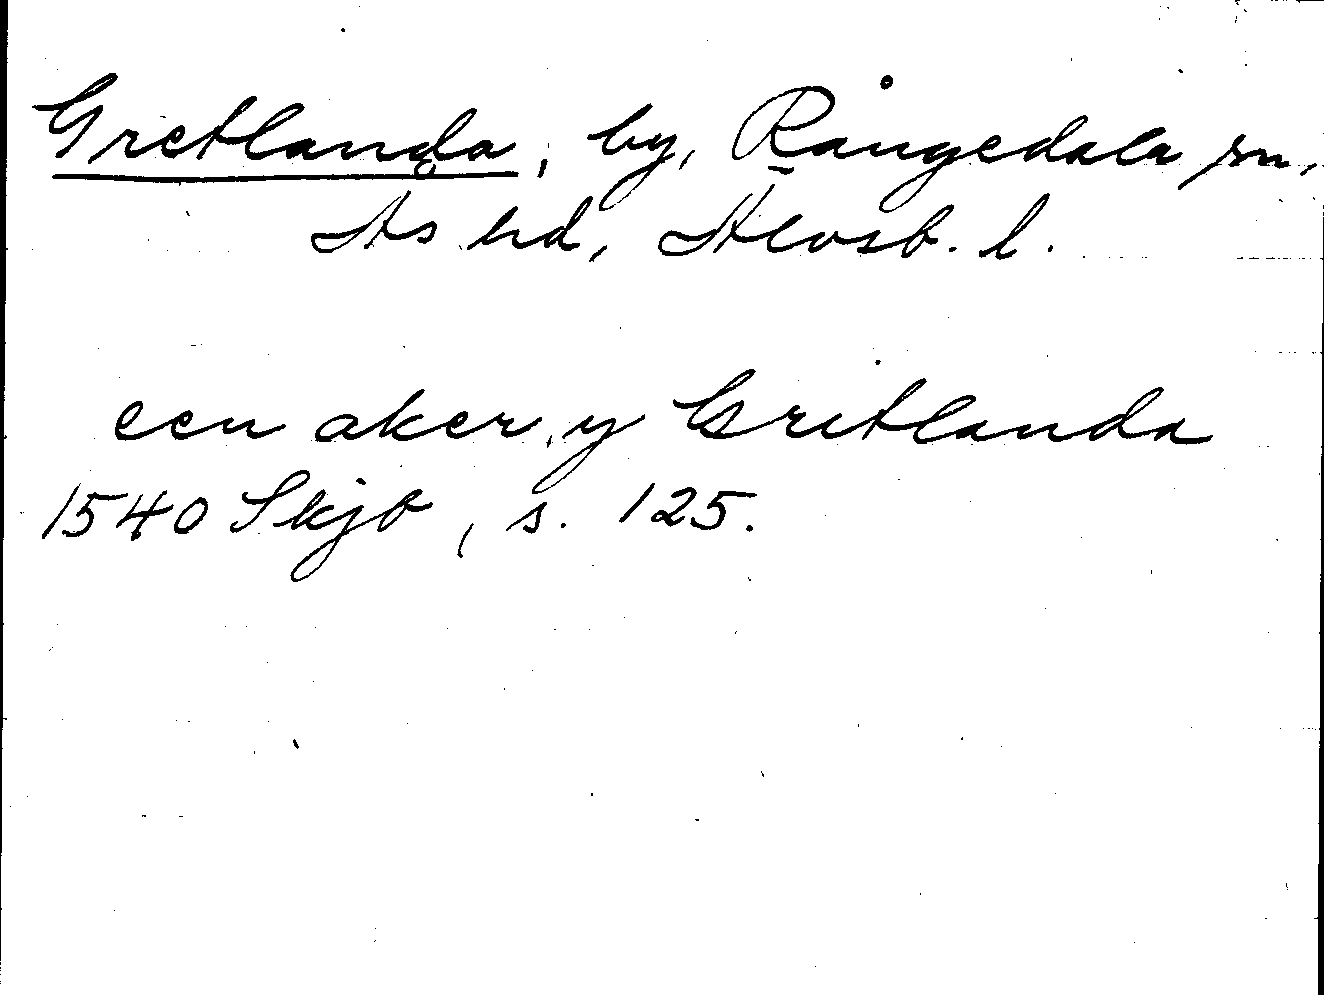 Gretlanda, by, Rångedala sn,
Ås hd, Älvsb. l.
een aker y Gritlanda
1540 Skjb, s. 125.